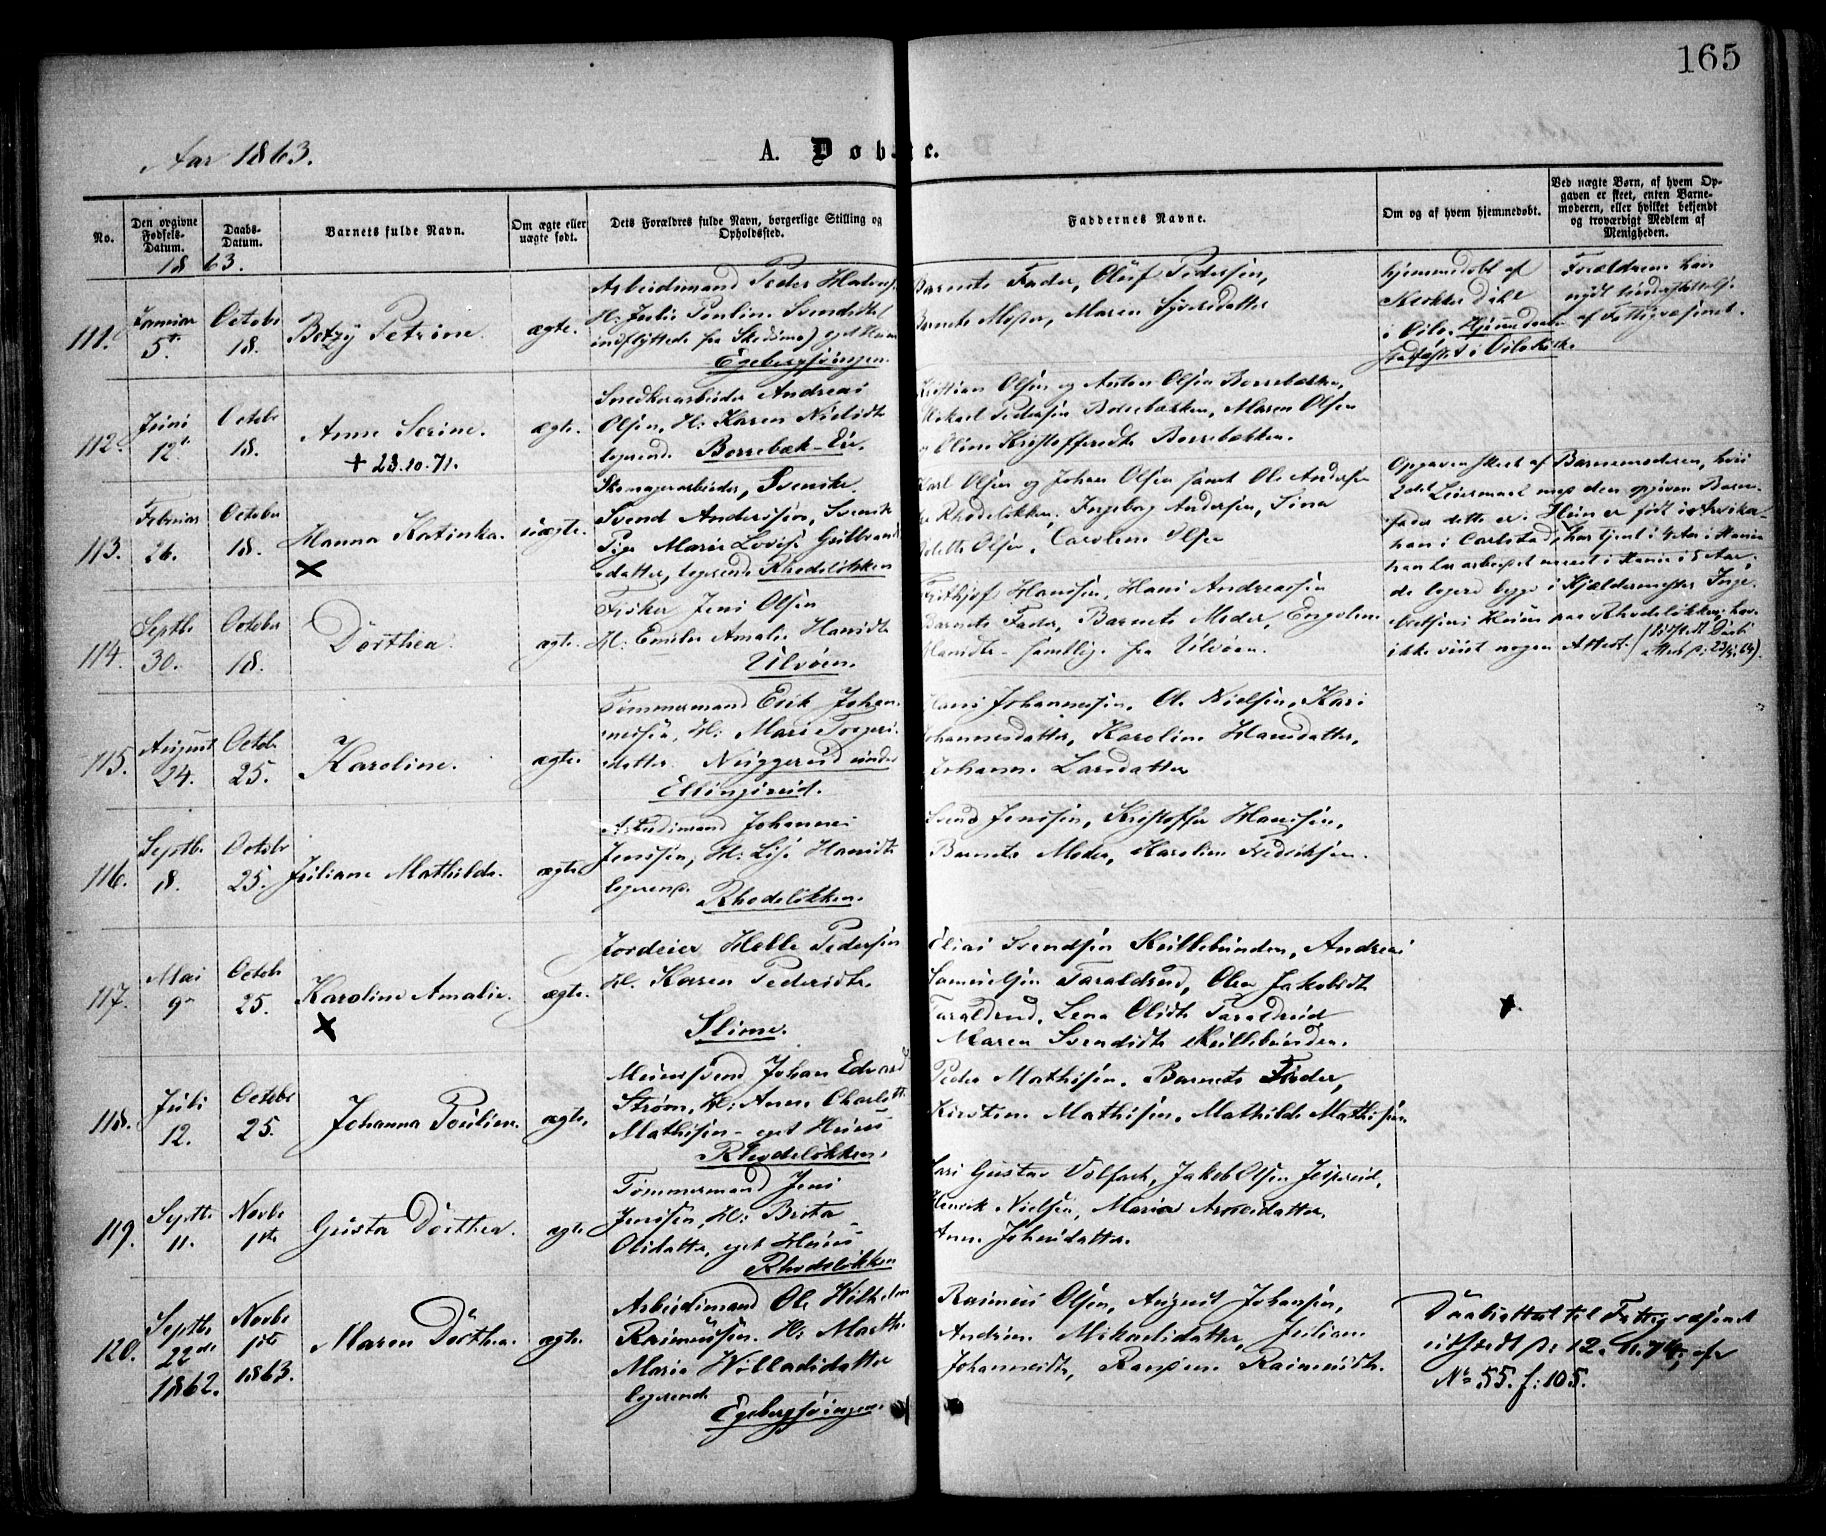 165
Aar 1863.
A. Døbte.
No.
Den opgivne Fødsels-Datum.
Daabs-Datum.
Barnets fulde Navn.
Om ægte eller uægte født.
Dets Forældres fulde Navn, borgerlige Stilling og Opholdssted.
Faddernes Navne.
Om og af hvem hjemmedøbt.
Ved uægte Børn, af hvem Opgaven er skeet, enten Barnemoderen, eller hvilket bekjendt og troværdigt Medlem af Menigheden.
1863.
111.
Januar 5te
Octobr 18.
Betzy Petrine.
ægte.
Arbeidsmand Peder
H: Julie Paulin Svendsdtr
indflyttede fra
Egebergsvingen
Barnets Fader, Oluf Pedersen,
Barnets Moder, Maren Syversdatter
hjemmedøbt af
Klokker Dahl
i Oslo. Hjemmedaaben
stadfæstet i Oslo Kirke.
Forældrene have
nydt understøttelse
af Fattigvæsenet.
112.
Juni 12te
Octobr 18.
Anne Serine.
+ 23.10.71.
ægte.
Snedkerarbeider Andreas
Olsen, H: Karen Nielsdtr
logerende Borrebæk-Eie
Kristian Olsen og Anton Olsen Borrebækken,
Mikael Pedersen Borrebækken, Maren Olsen
og Oline Kristoffersdtr Borrebækken.
113.
Februar 26.
Octobr 18.
Hanna Katinka.
X
uægte.
Skomagerarbeider, Svenske
Svend Anderssøn, Svensk
Pige Marie Lovise Gulbrands
datter, logerende Rhodeløkken
Karl Olsen og Johan Olsen samt Ole Andersen
Rhodeløkken. Ingeborg Andersen, Sina
Olsen, Caroline Olsen
Opgaven skeet af Barnemoderen, hvis
2det Leiermaal med den opgivne Barne-
fader dette er. Hun er født i Arvika
han i Carlstad
de logere begge i Kjældermester
paa Rhodeløkken, have
ikke viist nogen Attest.
114.
Septbr 30.
October 18.
Dorthea.
ægte.
Fisker Jens Olsen
H: Emilie Amalie Hansdtr
Ulvøen.
Fritkjof Hansen, Hans Andreassen
Barnets Fader, Barnets Moder, Engeline
Hansdtr - samtlige fra Ulvøen.
115.
August 24.
Octobr 25.
Karoline.
ægte.
Tømmermand Erik Johan
nessen, H: Mari Torgers
datter. Nuggerud under
Ellingsrud.
Hans Johannessen, Ole Nielsen, Kari
Johannesdatter, Karoline Hansdatter,
Johanne Larsdatter
116.
Septbr 18.
Octobr 25.
Juliane Mathilde.
ægte.
Arbeidsmand Johannes
Jenssen, H: Lise Hansdtr
logerende
Rhodeløkken.
Svend Jenssen, Kristoffer Hansen,
Barnets Moder, Karoline Fredriksen.
117.
Mai 9de
Octobr 25.
Karoline Amalie.
X
ægte.
Jordeier Helle Pedersen
H. Karen Pedersdtr.
Slime.
Elias Svendsen Kullebunden, Andreas
Samuelsen Taraldrud, Olea Jakobsdtr
Taraldrud, Lena Olsdtr Taraldrud
Maren Svendsdtr Kullebunden.
118.
Juli 12.
Octobr 25.
Johanna Pauline.
ægte.
Muursvend Johan Edvard
Strøm, H: Anne Charlotte
Mathisen - eget Huus
Rhodeløkken,
Peder Mathisen. Barnets Fader,
Kirstine Mathisen, Mathilde Mathisen.
119.
Septbr 11.
Novbr 1ste
Gusta Dorthea.
ægte.
Tømmermand Jens
Jenssen, H: Brita
Olsdatter, eget Huus -
Rhodeløkken
Lars Gustav Volfart, Jakob Olsen
Henrik Nielsen, Maria
Anne Johnsdatter.
120.
Septbr 22de 1862.
Novbr 1ste 1863.
Maren Dorthea.
ægte.
Arbeidsmand Ole Wilhelm
Rasmussen. H: Marthe
Marie Willadsdatter
logerende
Egebergsvingen.
Rasmus Olsen, August Johansen,
Andrine Mikaelsdatter, Juliane
Johannesdtr, Rasmusdtr.
Daabsattest til Fattigvæsenet
udstedt d: 12.
No 55. f: 105.